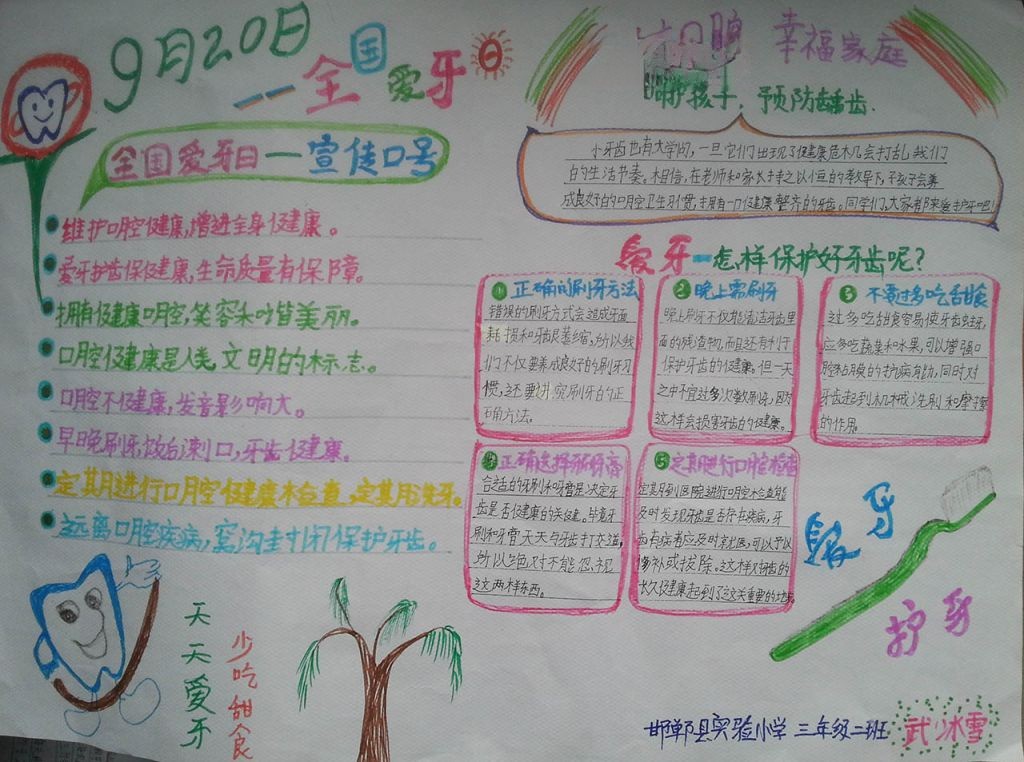 9月20日
——全国爱牙日
全国爱牙日—宣传口号
维护口腔健康,增进全身健康。
爱牙护齿保健康,生命质量有保障。
拥有健康口腔,笑容和你皆美丽。
口腔健康是人类文明的标志。
口腔不健康,发音影响大。
早晚刷牙饭后漱口,牙齿健康。
定期进行口腔健康检查,定期洗牙。
远离口腔疾病,窝沟封闭保护牙齿。
天天爱牙
少吃甜食
口腔 幸福家庭
呵护孩子,预防龋齿.
小牙齿也有大学问,一旦它们出现了健康危机会打乱我们
的生活节奏。相信,在老师和家长持之以恒的教导下,孩子会养
成良好的口腔卫生习惯,拥有一口健康整齐的牙齿。同学们,大家都来爱护牙吧!
爱牙—怎样保护好牙齿呢?
1 正确的刷牙方法
错误的刷牙方式会造成牙面
耗损和牙龈萎缩,所以我
们不仅要养成良好的刷牙习
惯,还要讲究刷牙的正
确方法。
2 晚上需刷牙
晚上刷牙不仅能清洁牙齿里
面的残渣物,而且还有利于
保护牙齿的健康。但一天
之中不宜过多次数刷牙,因为
这样会损害牙齿的健康。
3 不要过多吃甜食
过多吃甜食容易使牙齿蛀牙,
应多吃蔬菜和水果,可以增强口
腔粘膜的护病有助,同时对
牙齿起到机械洗刷和摩擦
的作用。
4 正确选择牙刷牙膏
合适的牙刷和牙膏是决定牙
齿是否健康的关健。毕竟牙
刷和牙膏天天与牙齿打交道,
所以绝对不能忽视
这两样东西。
5 定期进行口腔检查
定期到医院进行口腔检查能
及时发现牙齿是否存在疾病,牙
齿有病者应及时就医,可以予以
修补或拔除。这样对牙齿的
长久健康起到了致关重要的地位。
爱牙
护牙
邯郸县实验小学 三年级二班 武冰雪